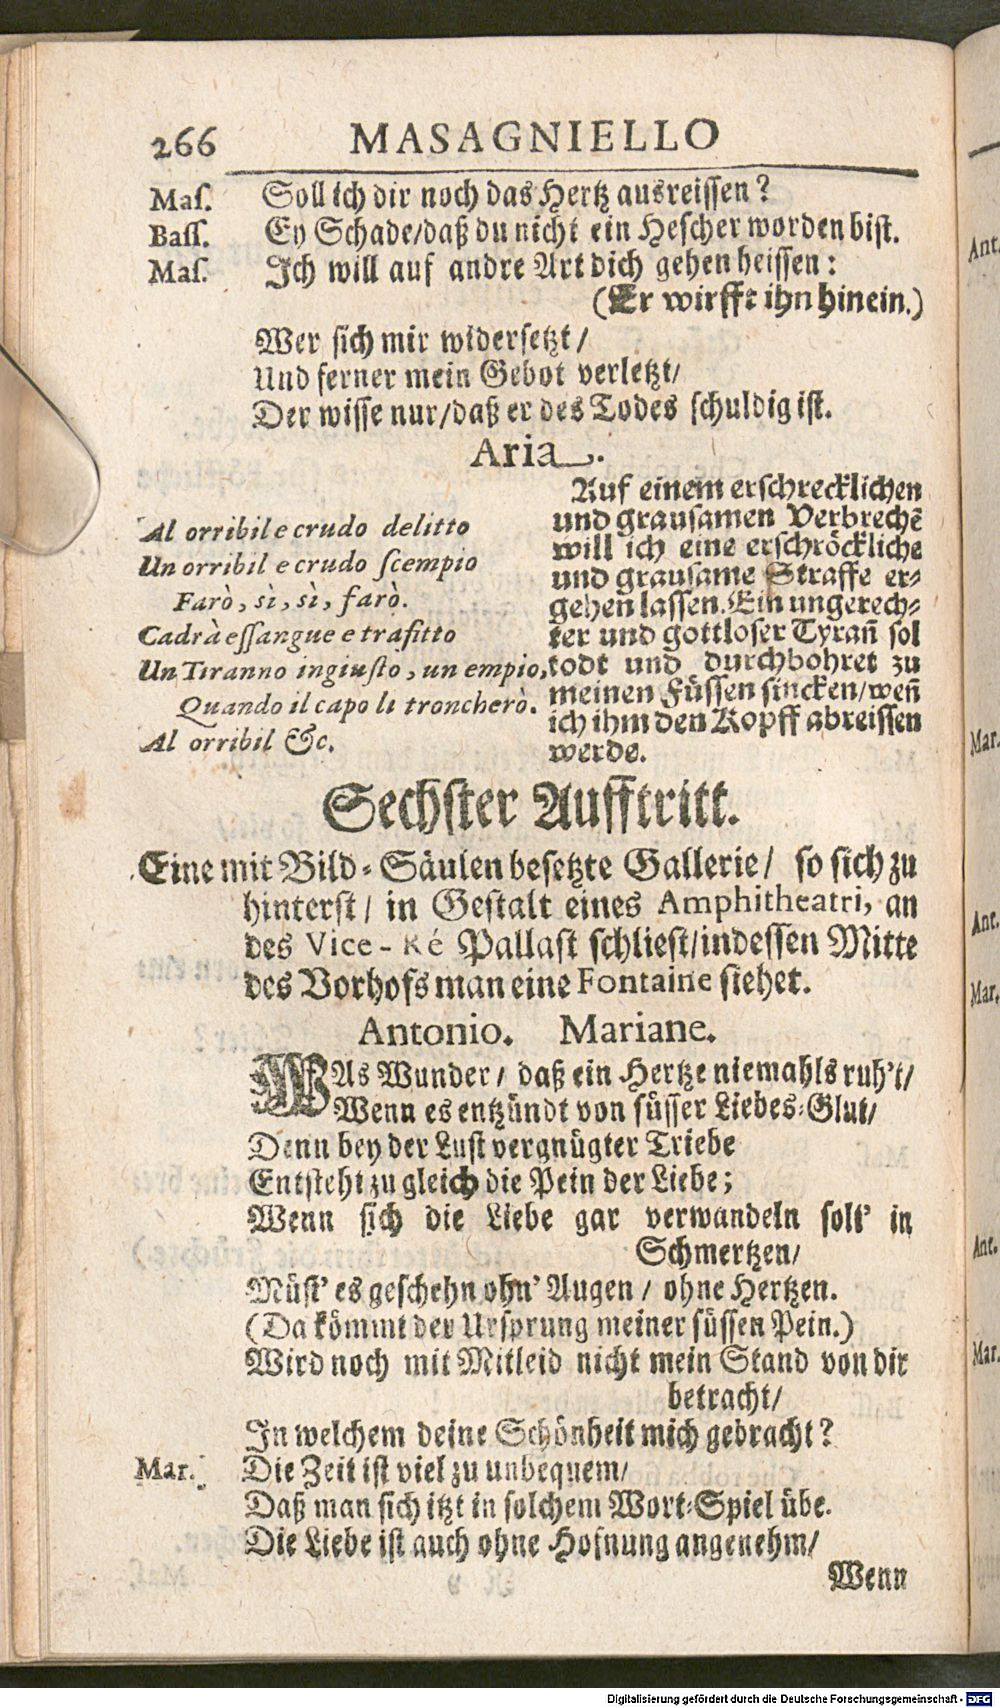 266 MASAGNIELLO
Mas. Soll ich dir noch das Hertz ausreissen?
Bass. Ey Schade/daß du nicht ein Hescher worden bist.
Mas. Ich will auf andre Art dich gehen heissen:
(Er wirfft ihn hinein.)
Wer sich mir widersetzt/
Und ferner mein Gebot verletzt/
Der wisse nur/daß er des Todes schuldig ist.
Aria.
Al orribil e crudo delitto
Un orribil e crudo scempio
Farò, sì, sì, farò.
Cadrà essangue e trafitto
Un Tiranno ingiusto, un empio,
Quando il capo li troncherò.
Al orribil &c.
Auf einem erschrecklichen
und grausamen Verbrechē
will ich eine erschröckliche
und grausame Straffe er-
gehen lassen. Ein ungerech-
ter und gottloser Tyrañ sol
todt und durchbohret zu
meinen Füssen sincken/weñ
ich ihm den Kopff abreissen
werde.
Sechster Aufftritt.
Eine mit Bild-Säulen besetzte Gallerie/ so sich zu
hinterst/ in Gestalt eines Amphitheatri, an
des Vice-Ré Pallast schliest/indessen Mitte
des Vorhofs man eine Fontaine siehet.
Antonio. Mariane.
WAs Wunder/ daß ein Hertze niemahls ruh't/
Wenn es entzündt von süsser Liebes-Glut/
Denn bey der Lust vergnügter Triebe
Entsteht zu gleich die Pein der Liebe;
Wenn sich die Liebe gar verwandeln solt' in
Schmertzen/
Müst' es geschehn ohn' Augen/ ohne Hertzen.
(Da kömmt der Ursprung meiner süssen Pein.)
Wird noch mit Mitleid nicht mein Stand von dir
betracht/
In welchem deine Schönheit mich gebracht?
Mar. Die Zeit ist viel zu unbequem/
Daß man sich itzt in solchem Wort-Spiel übe.
Die Liebe ist auch ohne Hofnung angenehm/
Wenn
Ant.
Mar.
Ant.
Mar.
Ant.
Mar.
Digitalisierung gefördert durch die Deutsche Forschungsgemeinschaft - DFG